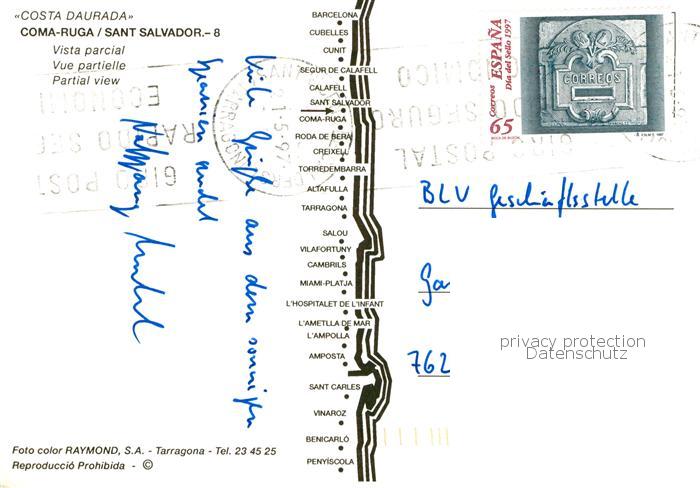 «COSTA DAURADA»
COMA-RUGA / SANT SALVADOR.– 8
Vista parcial
Vue partielle
Partial view
Viele Grüße aus dem sonnigen
Spanien sendet
BARCELONA
CUBELLES
CUNIT
SEGUR DE CALAFELL
CALAFELL
SANT SALVADOR
COMA-RUGA
RODA DE BERÀ
CREIXELL
TORREDEMBARRA
ALTAFULLA
TARRAGONA
SALOU
VILAFORTUNY
CAMBRILS
MIAMI-PLATJA
L'HOSPITALET DE L'INFANT
L'AMETLLA DE MAR
L'AMPOLLA
AMPOSTA
SANT CARLES
VINAROZ
BENICARLÓ
PENYÍSCOLA
Correos ESPAÑA
Día del Sello 1997
65
CORREOS
GIRO POSTAL
RAPIDO SEGURO
ECONOMICO
BLV Geschäftsstelle
762
privacy protection
Datenschutz
Foto color RAYMOND, S.A. - Tarragona - Tel. 23 45 25
Reproducció Prohibida - ©